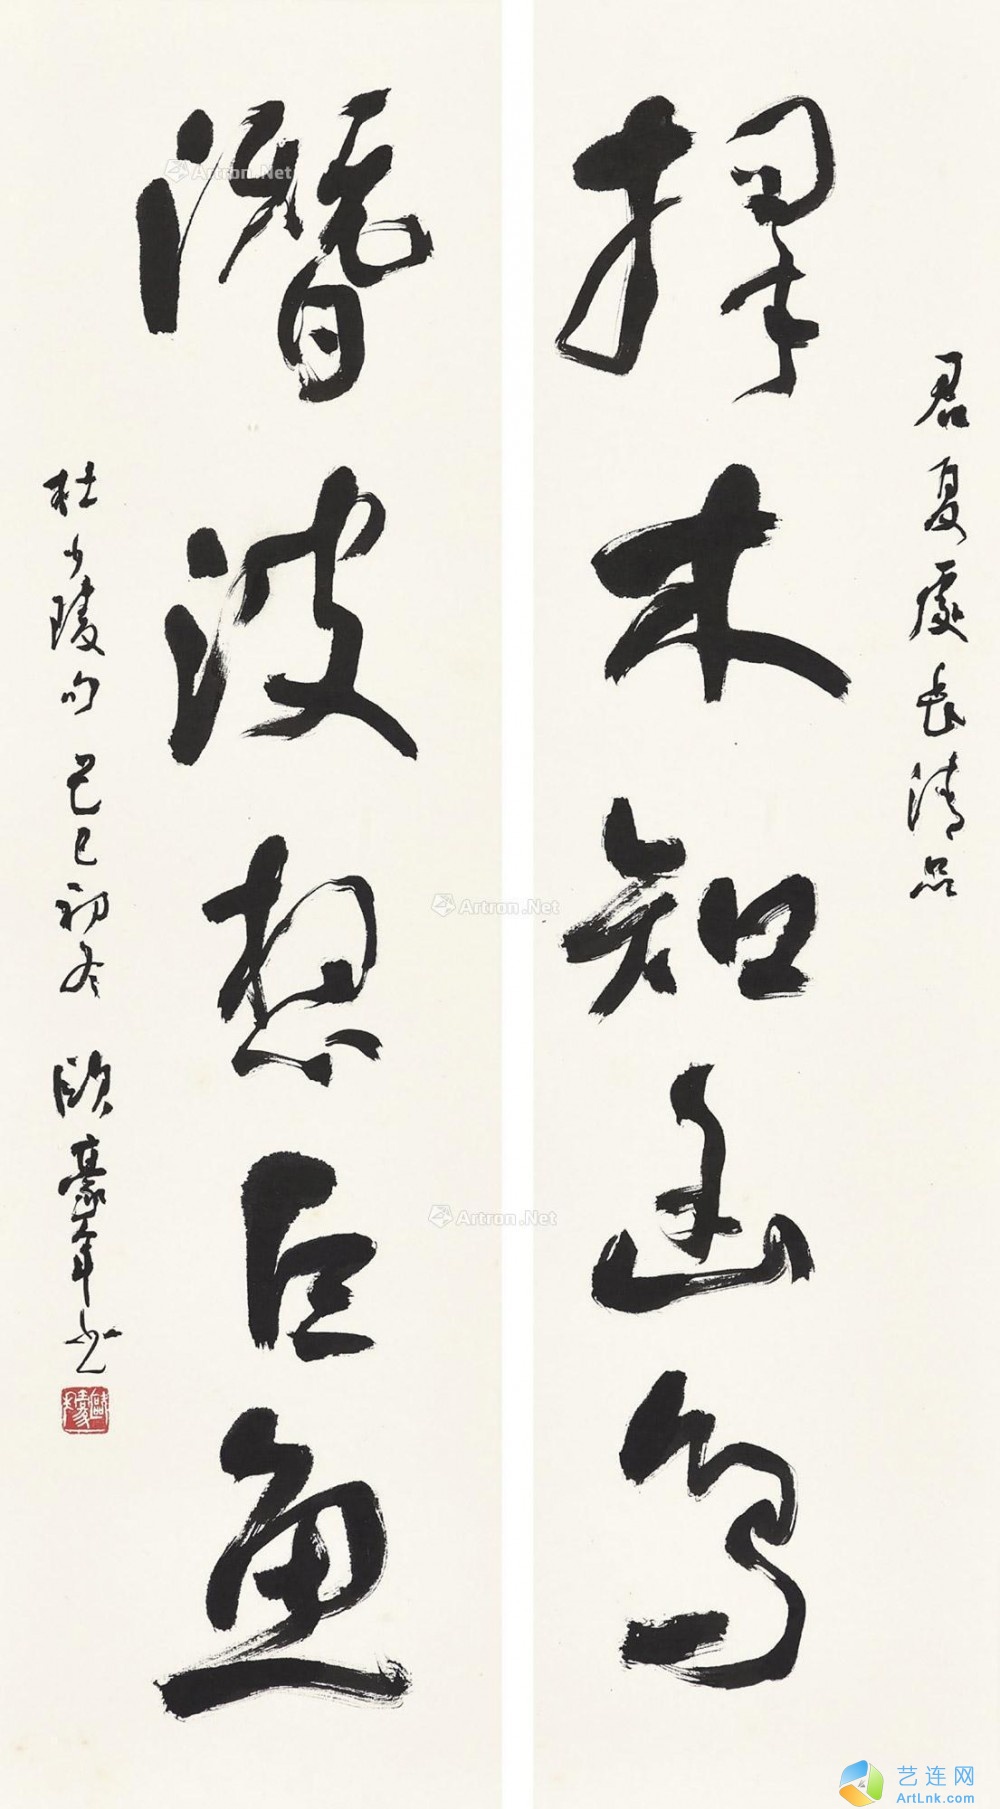 君夏處長清品
擇木知幽鳥
潛波想巨魚
杜少陵句 己巳初冬 歐豪年書
Artron.Net
Artron.Net
Artron.Net
艺连网
ArtLnk.com